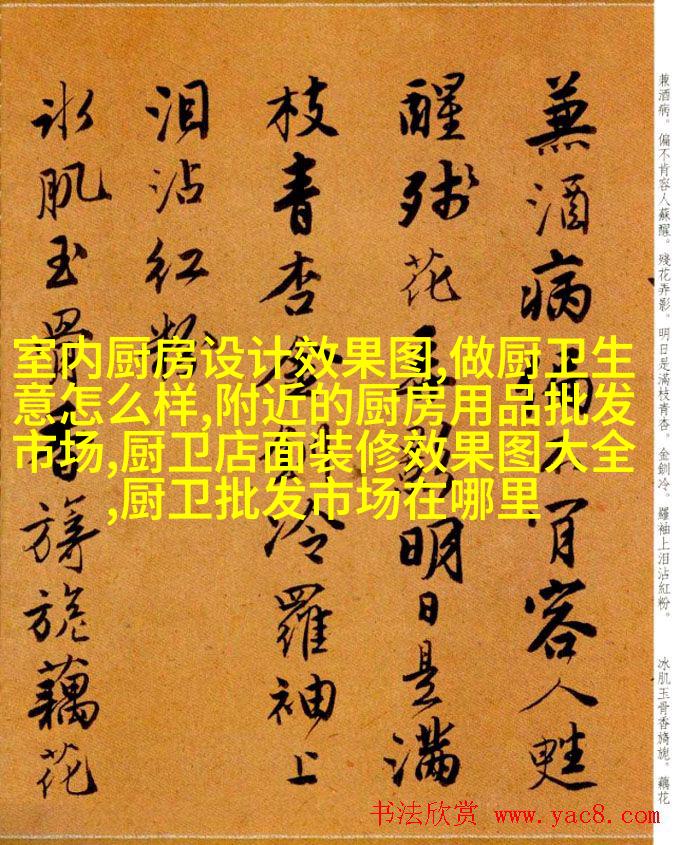 兼酒病。偏不肯容人蘇醒。殘花弄影。明日是滿枝青杏。金釧冷。羅袖上泪沾紅粉。
冰肌玉骨香旖旎。藕花
兼酒病偏不肯容人甦
醒殘花弄影明日是滿
枝青杏金釧冷羅袖上
泪沾紅粉
冰肌玉骨香旖旎藕花
室内厨房设计效果图,做厨卫生
意怎么样,附近的厨房用品批发
市场,厨卫店面装修效果图大全
,厨卫批发市场在哪里
书法欣赏 www.yac8.com